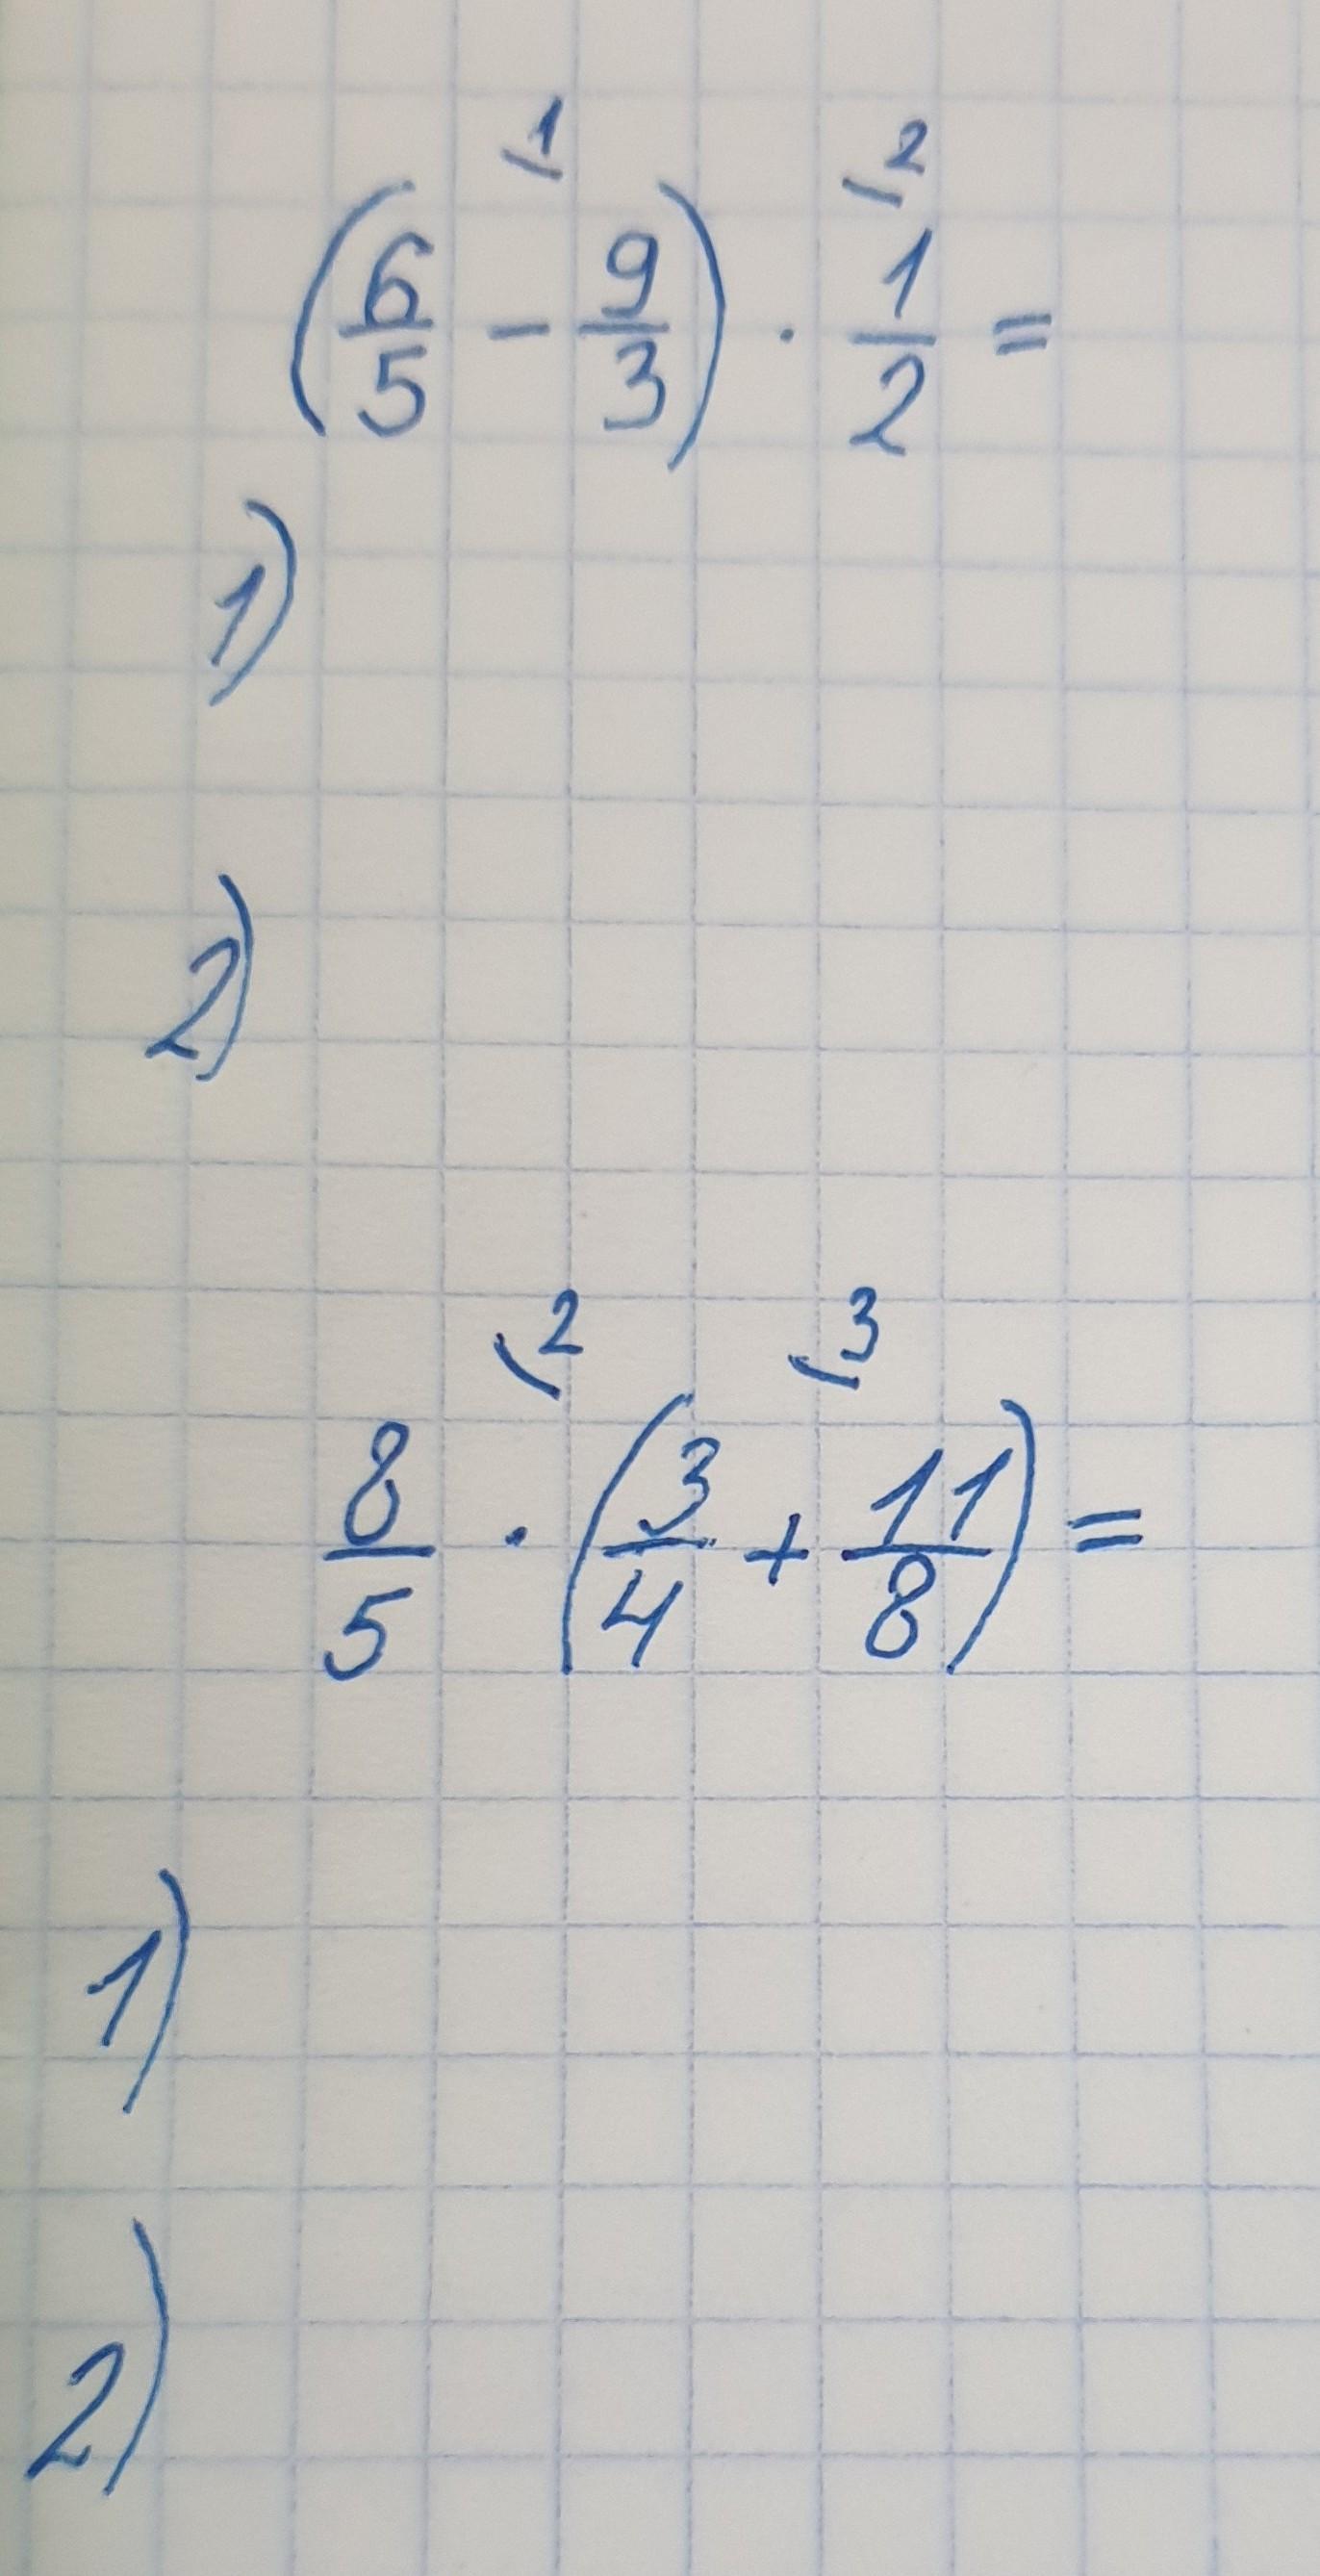 1 2
(6/5 - 9/3) · 1/2 =
1)
2)
2 3
8/5 · (3/4 + 11/8) =
1)
2)